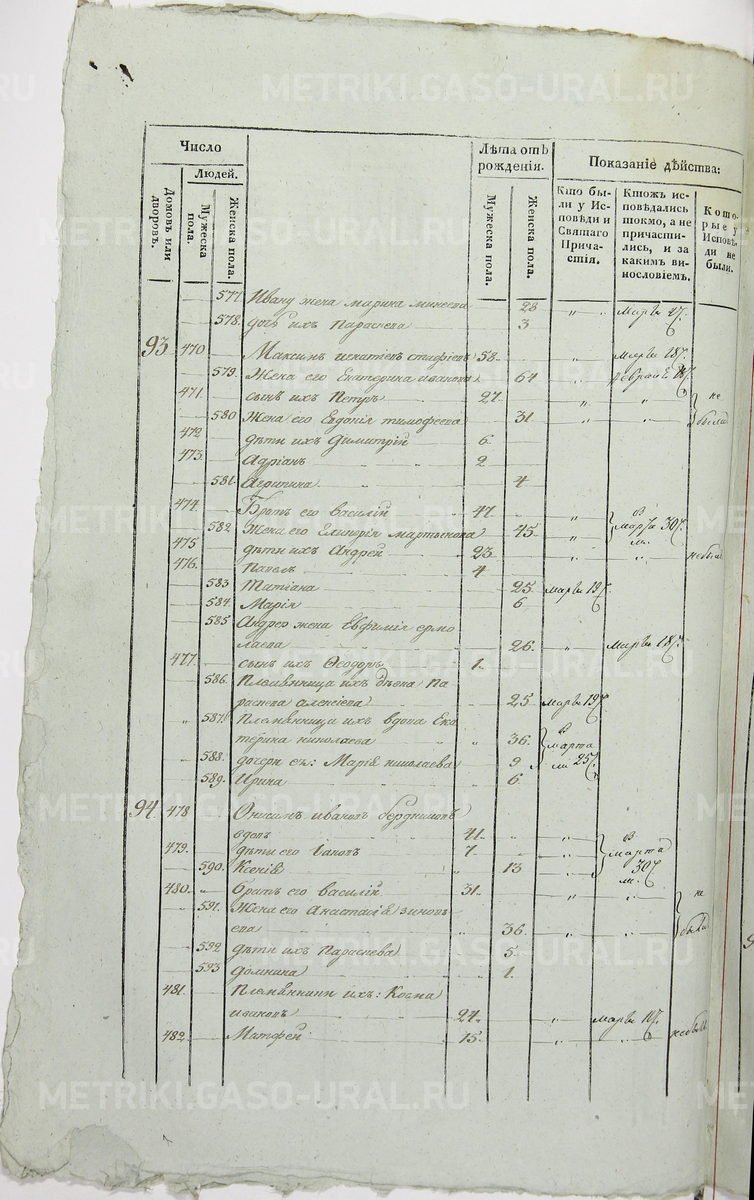 METRIKI.GASO-URAL.RU
Число
Людей.
Домовъ или дворовъ.
Мужеска пола.
Женска пола.
Лѣта отъ рожденія.
Мужеска пола.
Женска пола.
Показаніе дѣйства:
Кто бы-
ли у Ис-
повѣди и
Святаго
Прича-
стія.
Ктожъ ис-
повѣдались
токмо, а не
причасти-
лись, и за
какимъ ви-
нословіемъ.
Кото-
рые у
Исповѣ-
ди не
были.
577. Ивану жена марина 28 Марта 17.
578. дочь ихъ Параскева 3
93 470 Максимъ 58. Марта 18.
579. Жена его Екатерина иванова 64
471. сынъ ихъ Петръ 27. не
580 Жена его Евдокія тимофеева 31. были
472 дѣти ихъ Димитрій 6.
473. Адріанъ 2
581. Агрипина 4
474. Братъ его василій 47. в
582. Жена его мартынова 45 марта 30.
475 дѣти ихъ Андрей 23 не были
476. Павелъ 4
583 Татіана 25 марта 19.
584. Марія 6
585 Андрея жена Евфимія ермо
лаева 26. Марта 18.
477. сынъ ихъ Ѳеодоръ 1.
586. Племянница ихъ Па
раскева алексіева 25 марта 19.
587. Племянница ихъ вдова Ека
терина николаева 36. в марта
588. дочери ея: Марія николаева 9 25.
589. Ирина 6.
94 478 Онисимъ ивановъ
вдовъ 41. в
479. дѣти его Іванъ 7. марта
590. Ксенія 13 30.
480. братъ его василій 31. не
591. Жена его Анастасія зинов
ева 36. были
592 дѣти ихъ Параскева 5.
593 домнина 1.
481. Племянники ихъ: Козма
ивановъ 24. марта
482. Матфей 15. не были